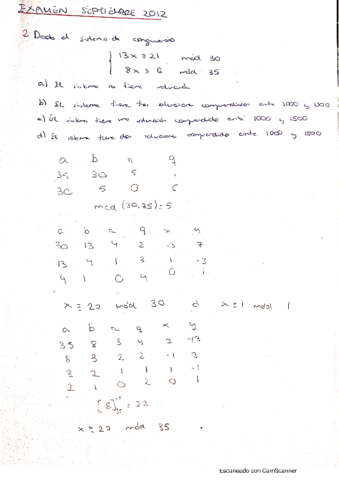 EXAMEN SEPTIEMBRE 2012
2. Dado el sistema de congruencias
13x ≡ 21 mód 30
8x ≡ 6 mód 35
a) El sistema no tiene solución
b) El sistema tiene tres soluciones comprendidas entre 1000 y 1500
c) El sistema tiene una solución comprendida entre 1000 y 1500
d) El sistema tiene dos soluciones comprendidas entre 1000 y 1500
a b r q
35 30 5 1
30 5 0 6
mcd (30,35) = 5
a b r q x y
30 13 4 2 -3 7
13 4 1 3 1 -3
4 1 0 4 0 1
x ≡ 27 mód 30
a b r q x y
35 8 3 4 3 -13
8 3 2 2 -1 3
3 2 1 1 1 -1
2 1 0 2 0 1
[8]⁻¹₃₅ = 22
x ≡ 27 mód 35
Escaneado con CamScanner